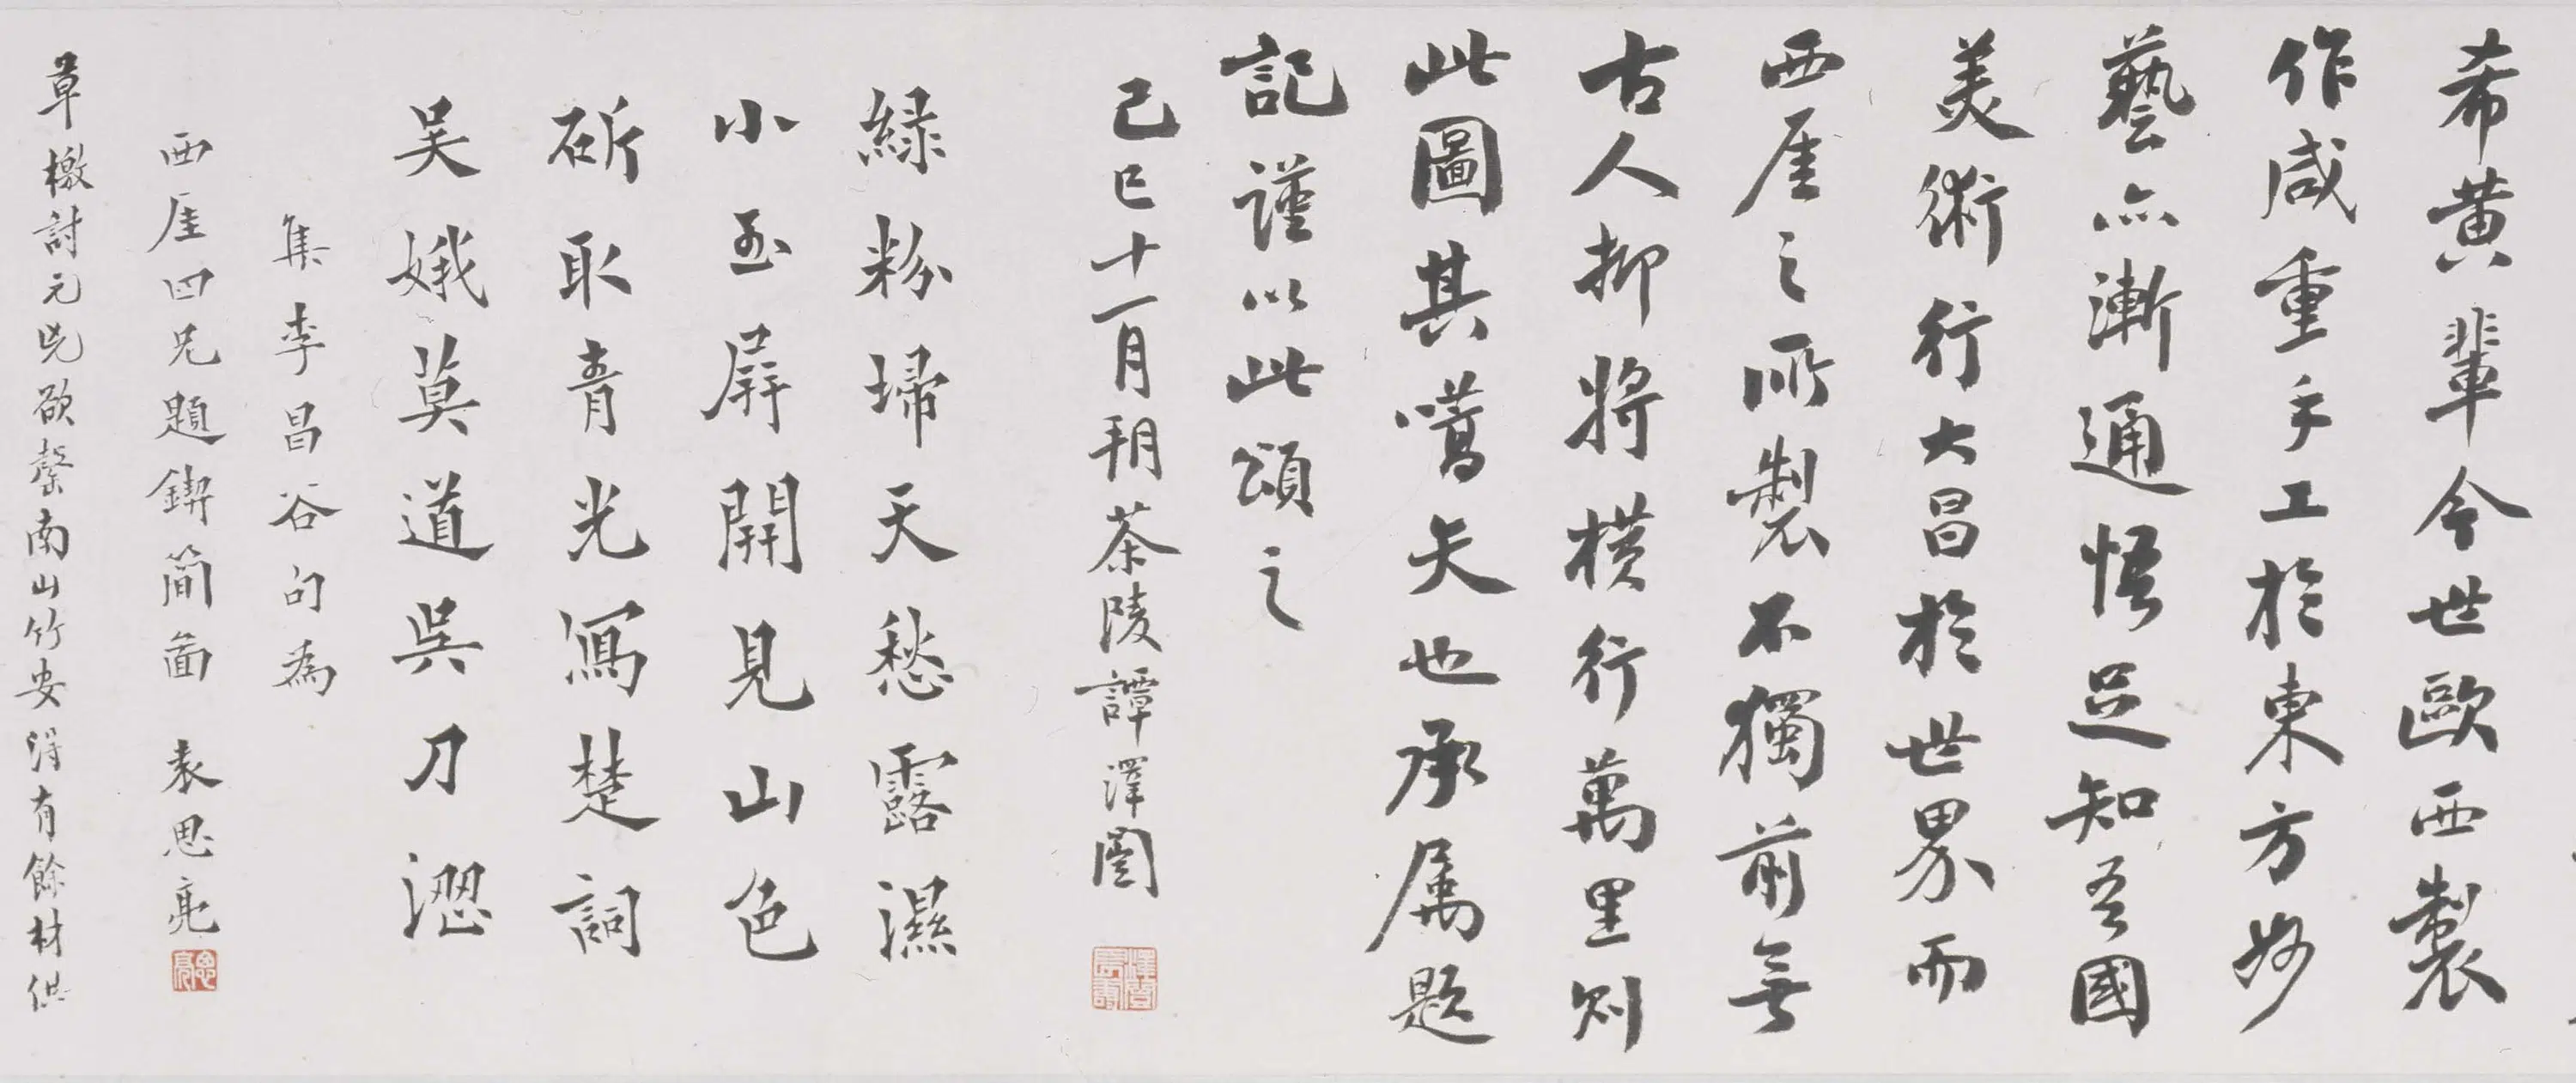 希黄輩今世歐西製
作咸重手工於東方妙
藝亦漸通悟足知吾國
美術行大昌於世界而
西厓之所製不獨前無
古人抑將横行萬里則
此圖其嚆矢也承属題
記謹以此頌之
己巳十一月朔茶陵譚澤闓
緑粉掃天愁露濕
小玉屏開見山色
斫取青光寫楚詞
吴娥莫道呉刀澀
集李昌谷句為
西厓四兄題鍥簡面 袁思亮
思亮
草檄討元凶欲罄南山竹安得有餘材供